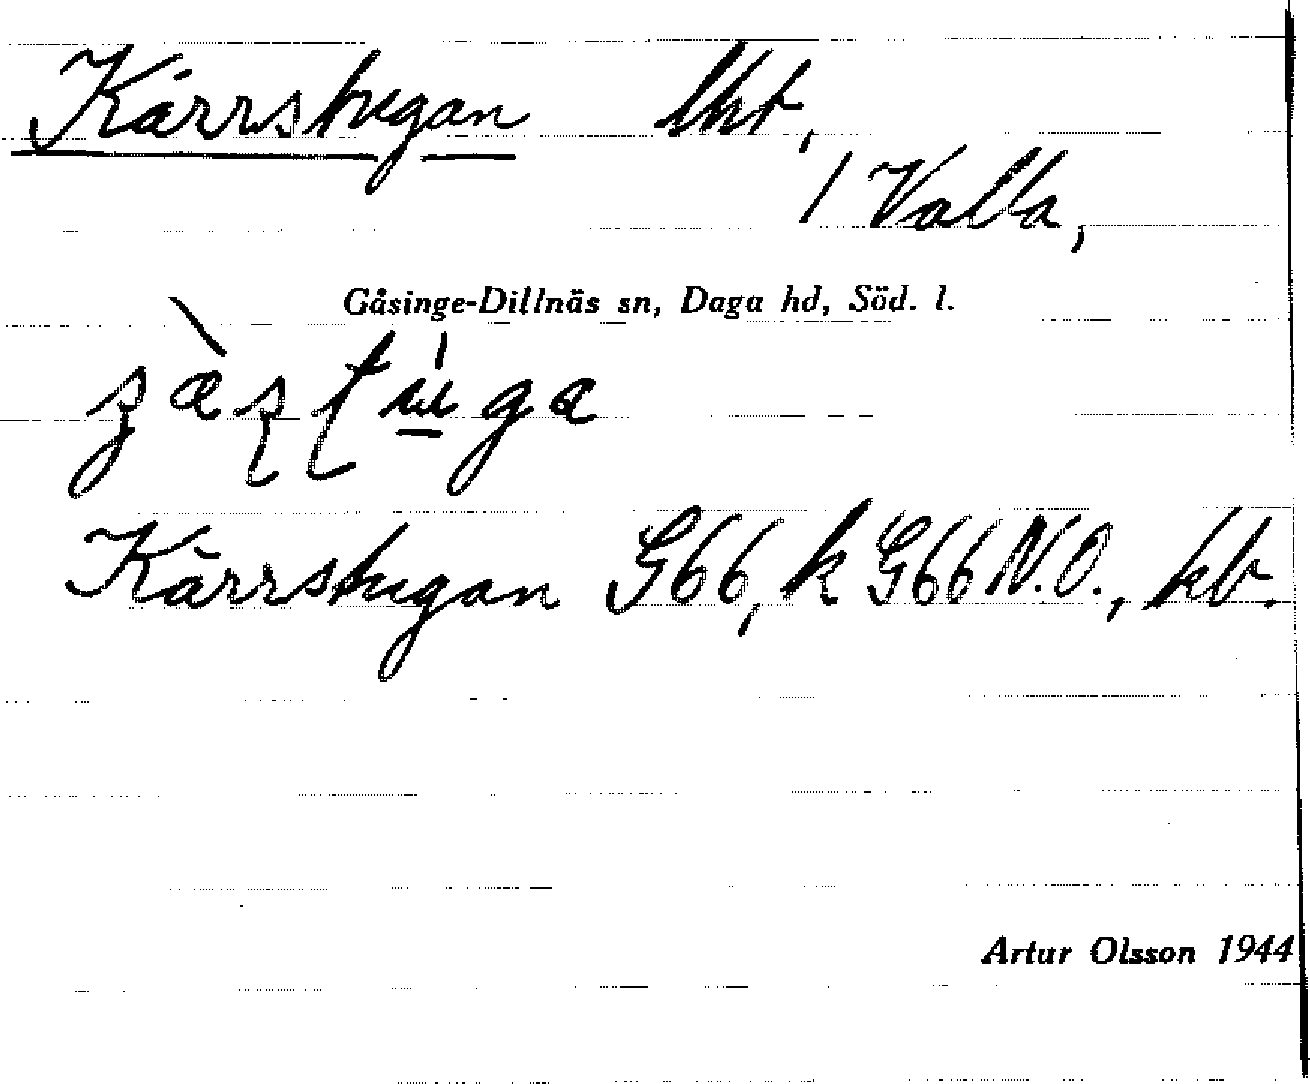 Kärrstugan lht,
/ Valla,
Gåsinge-Dillnäs sn, Daga hd, Söd. l.
Kärrstugan G66, k G66 N.O., kb.
Artur Olsson 1944